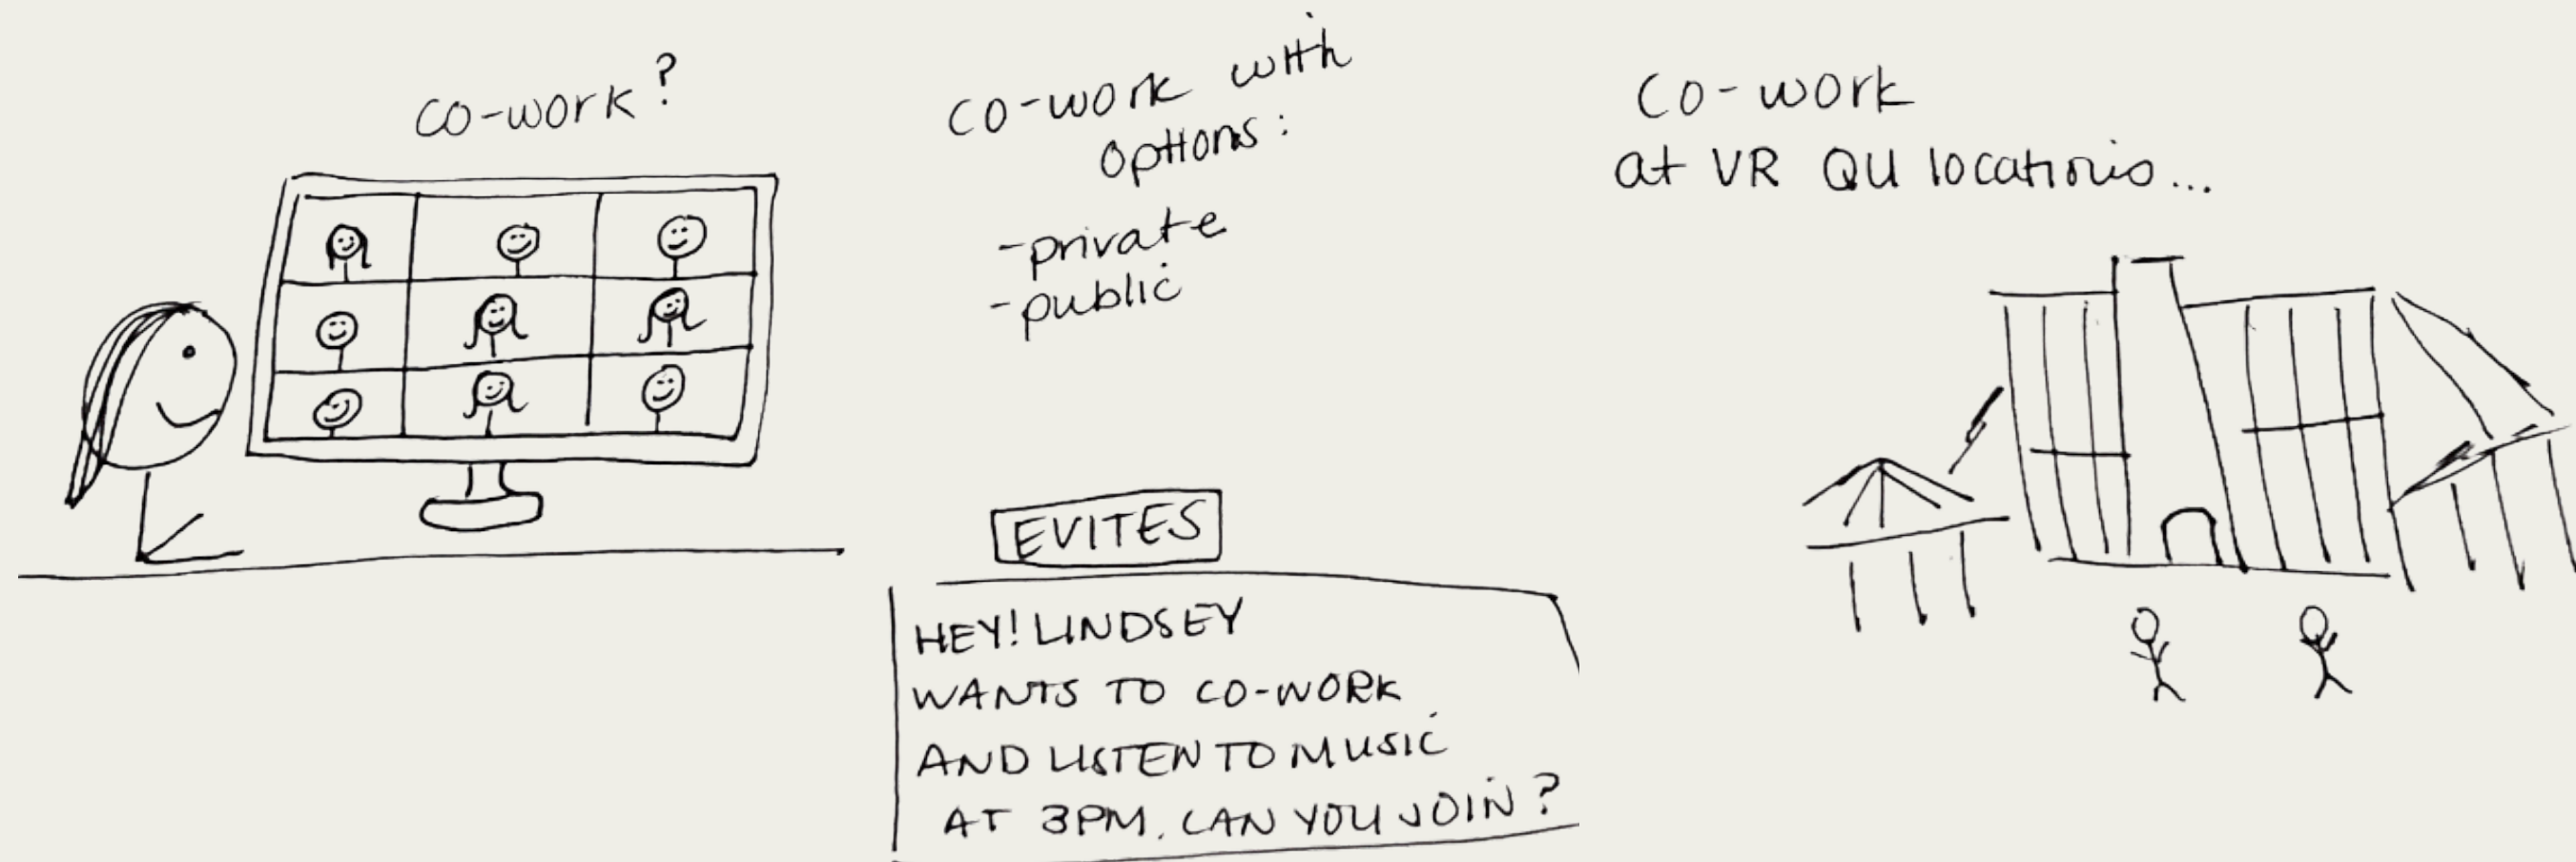 co-work?
co-work with
options:
-private
-public
EVITES
HEY! LINDSEY
WANTS TO CO-WORK
AND LISTEN TO MUSIC
AT 3PM. CAN YOU JOIN?
co-work
at VR QU locations...